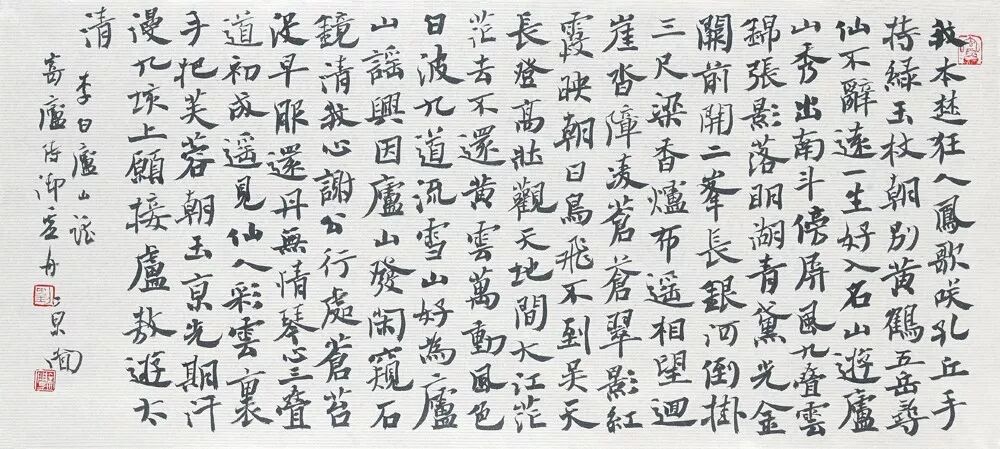 我本楚狂人鳳歌咲孔丘手
持綠玉杖朝別黃鶴五岳尋
仙不辭遠一生好入名山遊廬
山秀出南斗傍屏風九疊雲
錦張影落明湖青黛光金
闕前開二峯長銀河倒掛
三尺梁香爐布遥相望迴
崖沓障凌蒼蒼翠影紅
霞映朝日鳥飛不到吳天
長登高壯觀天地間大江茫
茫去不還黃雲萬動風色
日波九道流雪山好為廬
山謠興因廬山發閑窺石
鏡清我心謝公行處蒼苔
没早服還丹無情琴心三疊
道初成遥見仙人彩雲裏
手把芙蓉朝玉京先期汗
漫九垓上願接盧敖遊太
清
李白廬山謠
寄廬侍御虛舟